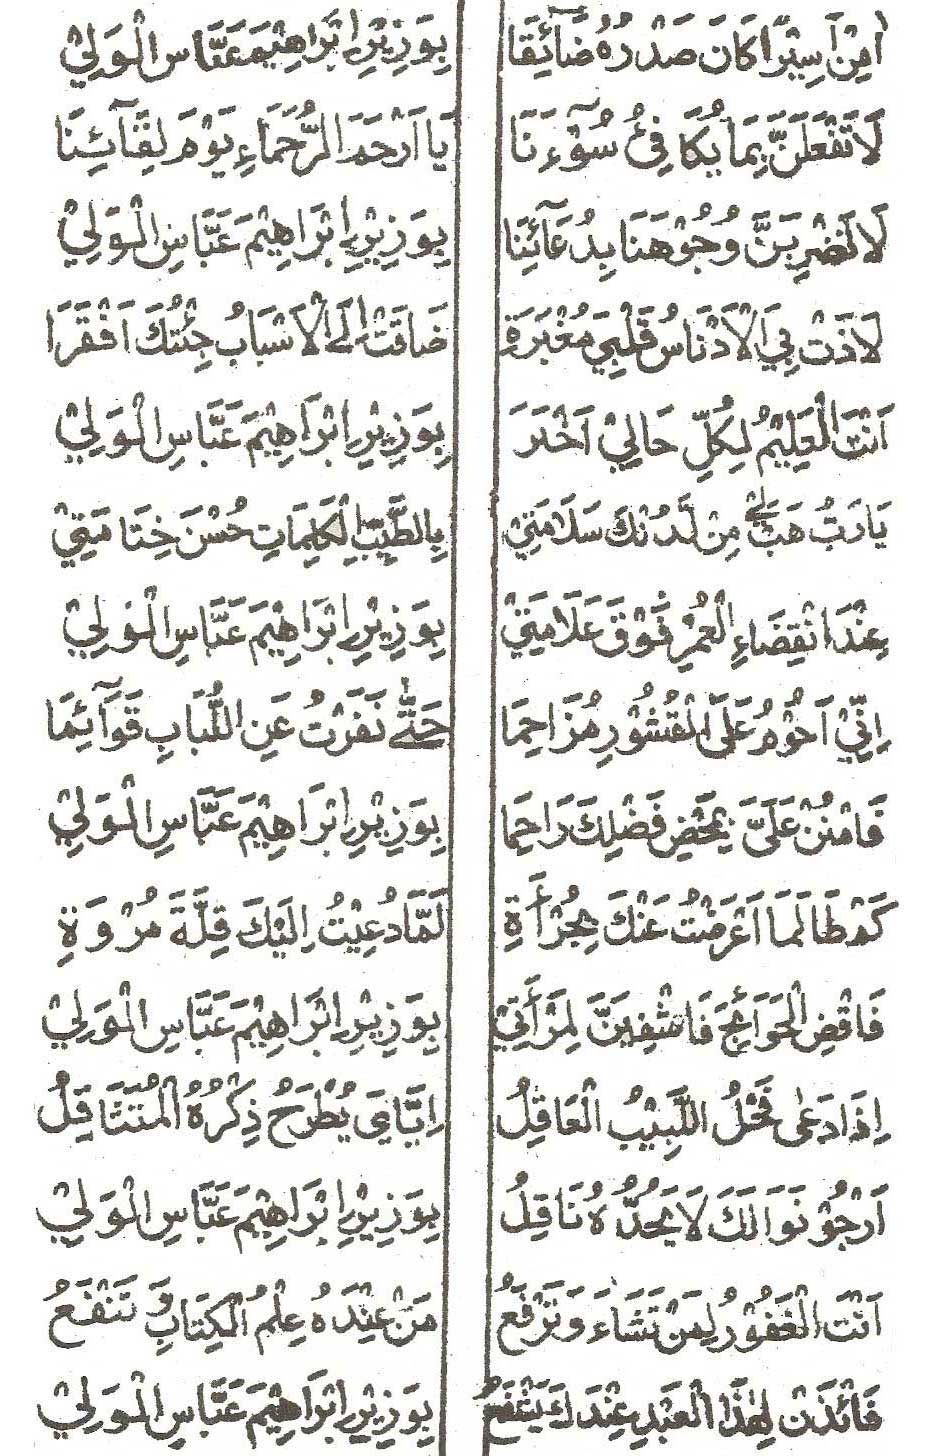 اٰمِنْ اَسِيْرًا كَانَ صَدْرُهُ ضَآئِقَا بِوَزِيْرِ اِبْرَاهِيْمَ عَبَّاسِ الْوَلِيْ
لَا تَفْعَلَنَّ بِمَا يُكَافِئُ سُوْٓءَنَا يَا اَرْحَمَ الرُّحَمَاءِ يَوْمَ لِقَآئِنَا
لَا تَضْرِبَنَّ وُجُوْهَنَا بِدُعَآئِنَا بِوَزِيْرِ اِبْرَاهِيْمَ عَبَّاسِ الْوَلِيْ
لَاذَتْ بِيَ الْاَدْنَاسُ قَلْبِيَ مُغْبَرَةِ ضَاقَتْ اِلَى الْاَسْبَابُ جِئْتُكَ اَفْقَرَا
اَنْتَ الْعَلِيْمُ لِكُلِّ حَالِيْ اَخْبَرَ بِوَزِيْرِ اِبْرَاهِيْمَ عَبَّاسِ الْوَلِيْ
يَا رَبُّ هَبْ لِيْ مِنْ لَّدُنْكَ سَلَامَتِيْ بِالطَّيِّبِ الْكَلِمَاتِ حُسْنَ خِتَامَتِيْ
عِنْدَ انْقِضَاءِ الْعُمْرِ فَوْقَ عَلَامَتِيْ بِوَزِيْرِ اِبْرَاهِيْمَ عَبَّاسِ الْوَلِيْ
اِنِّيْ اَحُوْمُ عَلَى الْقُشُوْرِ مُزَاحِمَا حَتّٰى نَفَرْتُ عَنِ اللُّبَابِ قَوَآئِمَا
فَامْنُنْ عَلَىَّ بِمَحْضِ فَضْلِكَ رَاحِمَا بِوَزِيْرِ اِبْرَاهِيْمَ عَبَّاسِ الْوَلِيْ
كَمْ طَالَمَا اَعْرَضْتُ عَنْكَ بِجُرْأَةِ لَمَّا دُعِيْتُ اِلَيْكَ قِلَّةَ مُرْوَةِ
فَاقْضِ الْحَوَائِجَ فَاشْفِيَنَّ لِمَرْأَتِيْ بِوَزِيْرِ اِبْرَاهِيْمَ عَبَّاسِ الْوَلِيْ
اِذَا دَعٰى فَحْلُ اللَّبِيْبُ الْعَاقِلُ اِيَّايَ يُطْرَحُ ذِكْرُهُ الْمُتَثَاقِلُ
اَرْجُوْ نَوَالَكَ لَا يَحُدُّهُ نَاقِلُ بِوَزِيْرِ اِبْرَاهِيْمَ عَبَّاسِ الْوَلِيْ
اَنْتَ الْغَفُوْرُ لِمَنْ تَشَاءَ وَتَرْفَعُ مَنْ عِنْدَهُ عِلْمُ الْكِتَابِ وَتَنْفَعُ
فَائْذَنْ لِهٰذَا الْعَبْدِ عِنْدَكَ يَشْفَعُ بِوَزِيْرِ اِبْرَاهِيْمَ عَبَّاسِ الْوَلِيْ